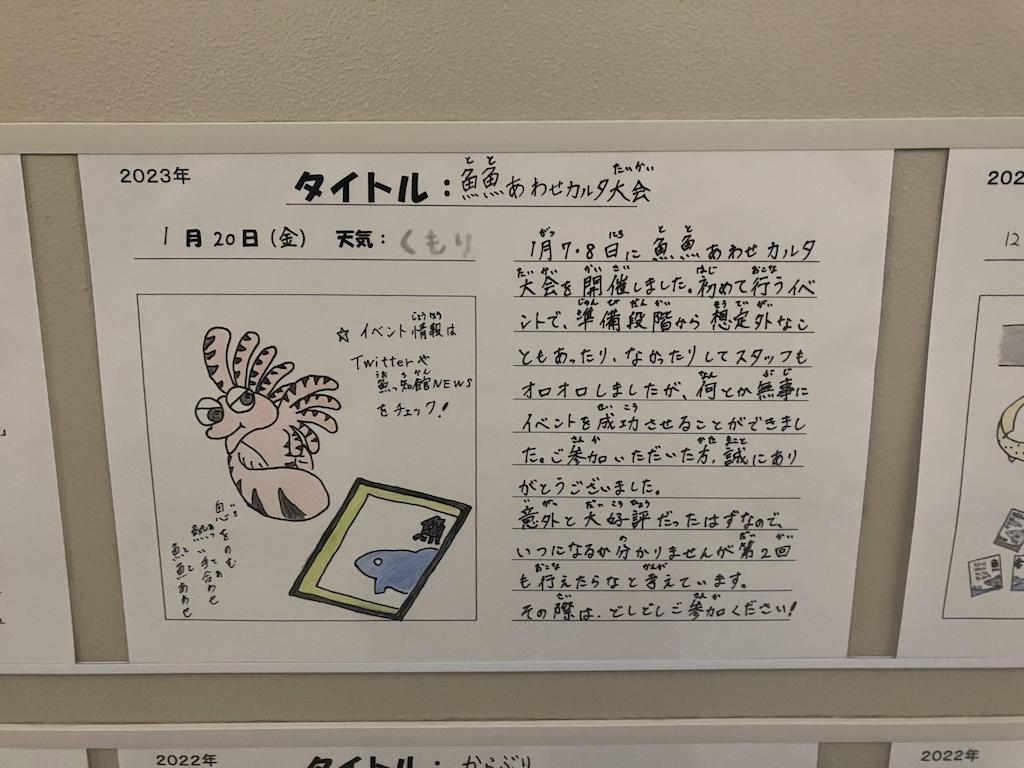 2023年
タイトル：魚魚あわせカルタ大会
1月20日(金) 天気：くもり
☆イベント情報は
Twitterや
魚っ知館NEWS
をチェック！
魚
息をのむ
熱い手合わせ
魚魚あわせ
1月7・8日に魚魚あわせカルタ
大会を開催しました。初めて行うイベ
ントで、準備段階から想定外なこ
ともあったり、なかったりしてスタッフも
オロオロしましたが、何とか無事に
イベントを成功させることができまし
た。ご参加いただいた方、誠にあり
がとうございました。
意外と大好評だったはずなので、
いつになるか分かりませんが第2回
も行えたらなと考えています。
その際は、どしどしご参加ください！
202
12
2022年
タイトル：からぶり
2022年